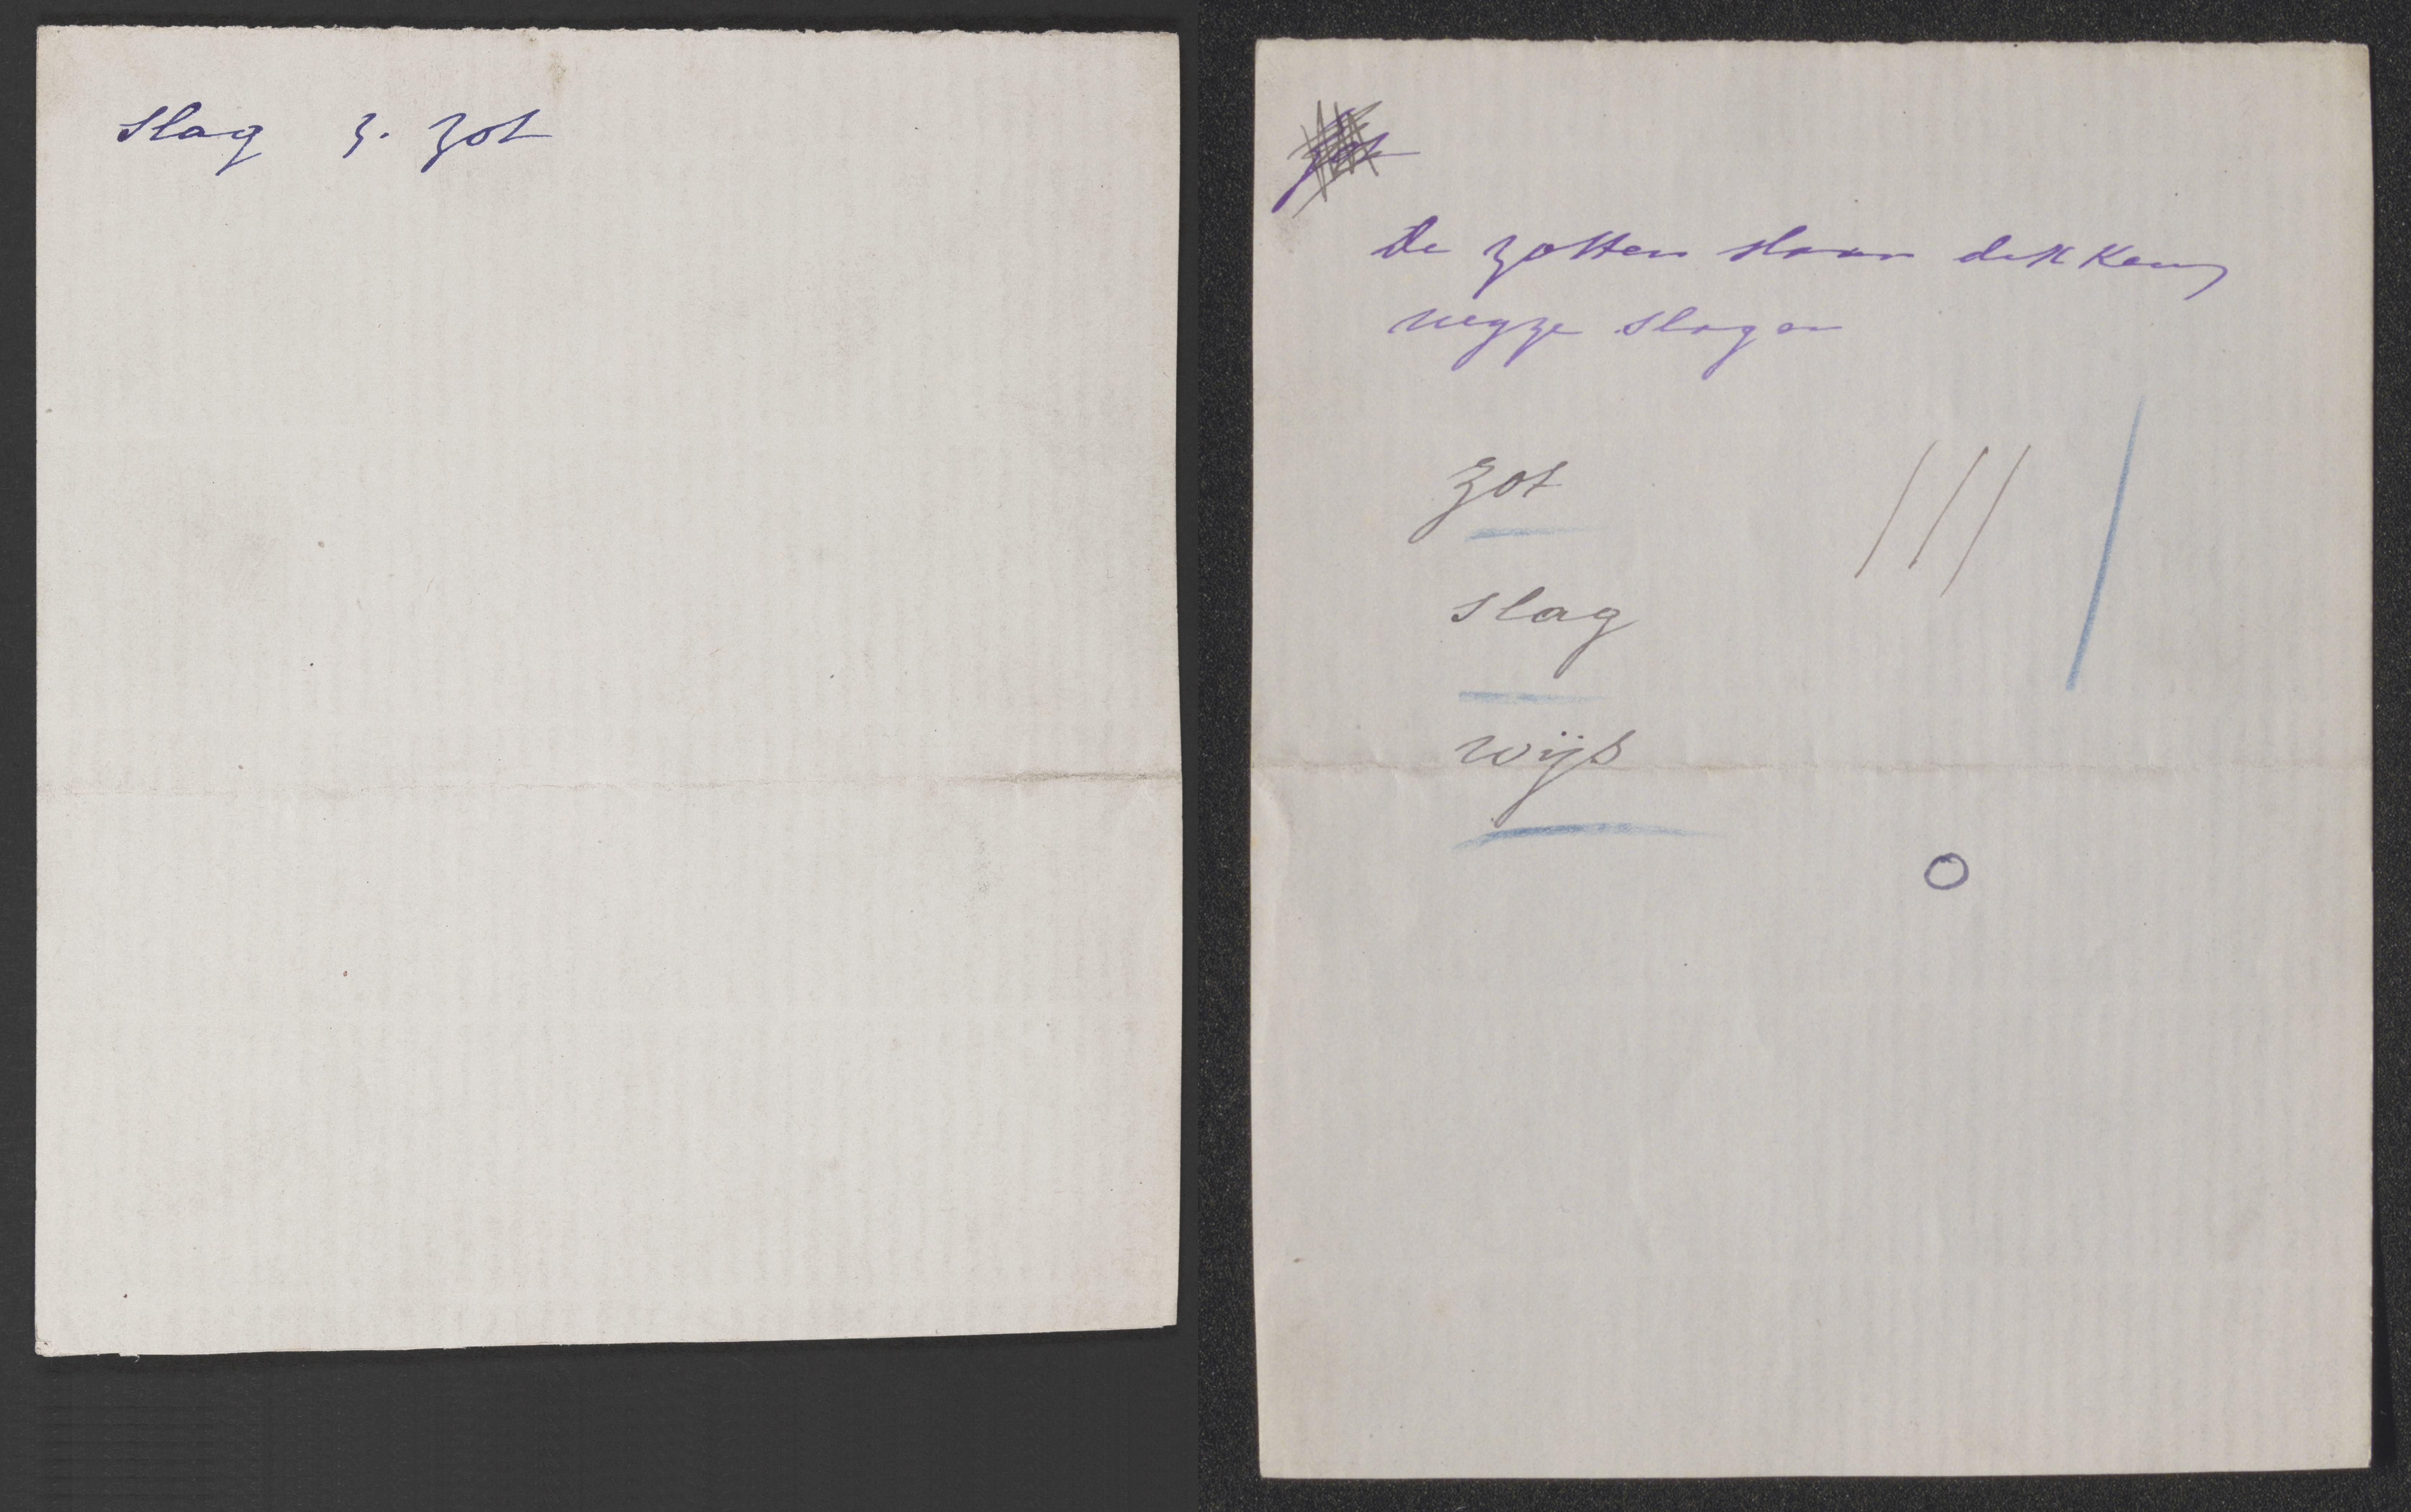 slag z. zot
zot
De zotten slaan dikkens
wyze slagen
zot
slag
wijs